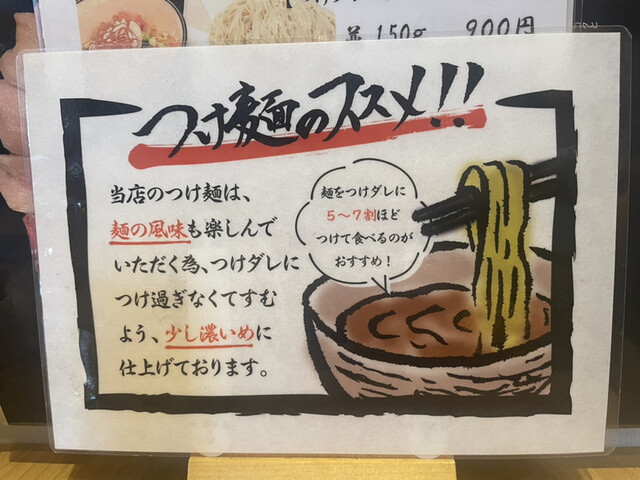 並 150g 900円
つけ麺のススメ!!
当店のつけ麺は、
麺の風味も楽しんで
いただく為、つけダレに
つけ過ぎなくてすむ
よう、少し濃いめに
仕上げております。
麺をつけダレに
5〜7割ほど
つけて食べるのが
おすすめ!